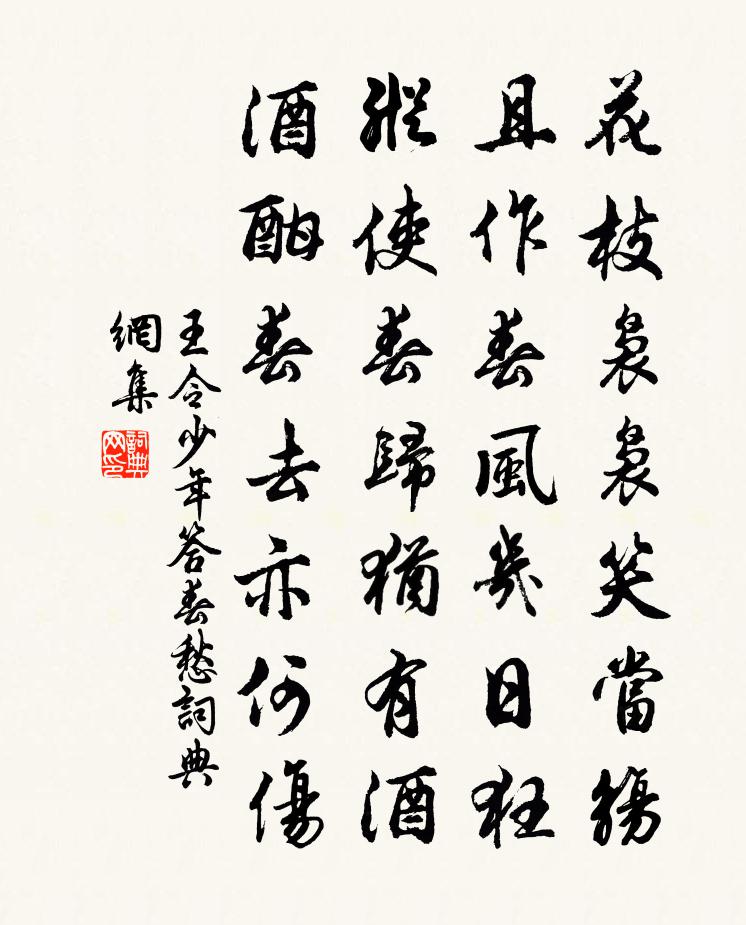 花枝裊裊笑當觴
且作春風幾日狂
縱使春歸猶有酒
酒酣春去亦何傷
王令少年答春愁詞典
網集
詞典網印